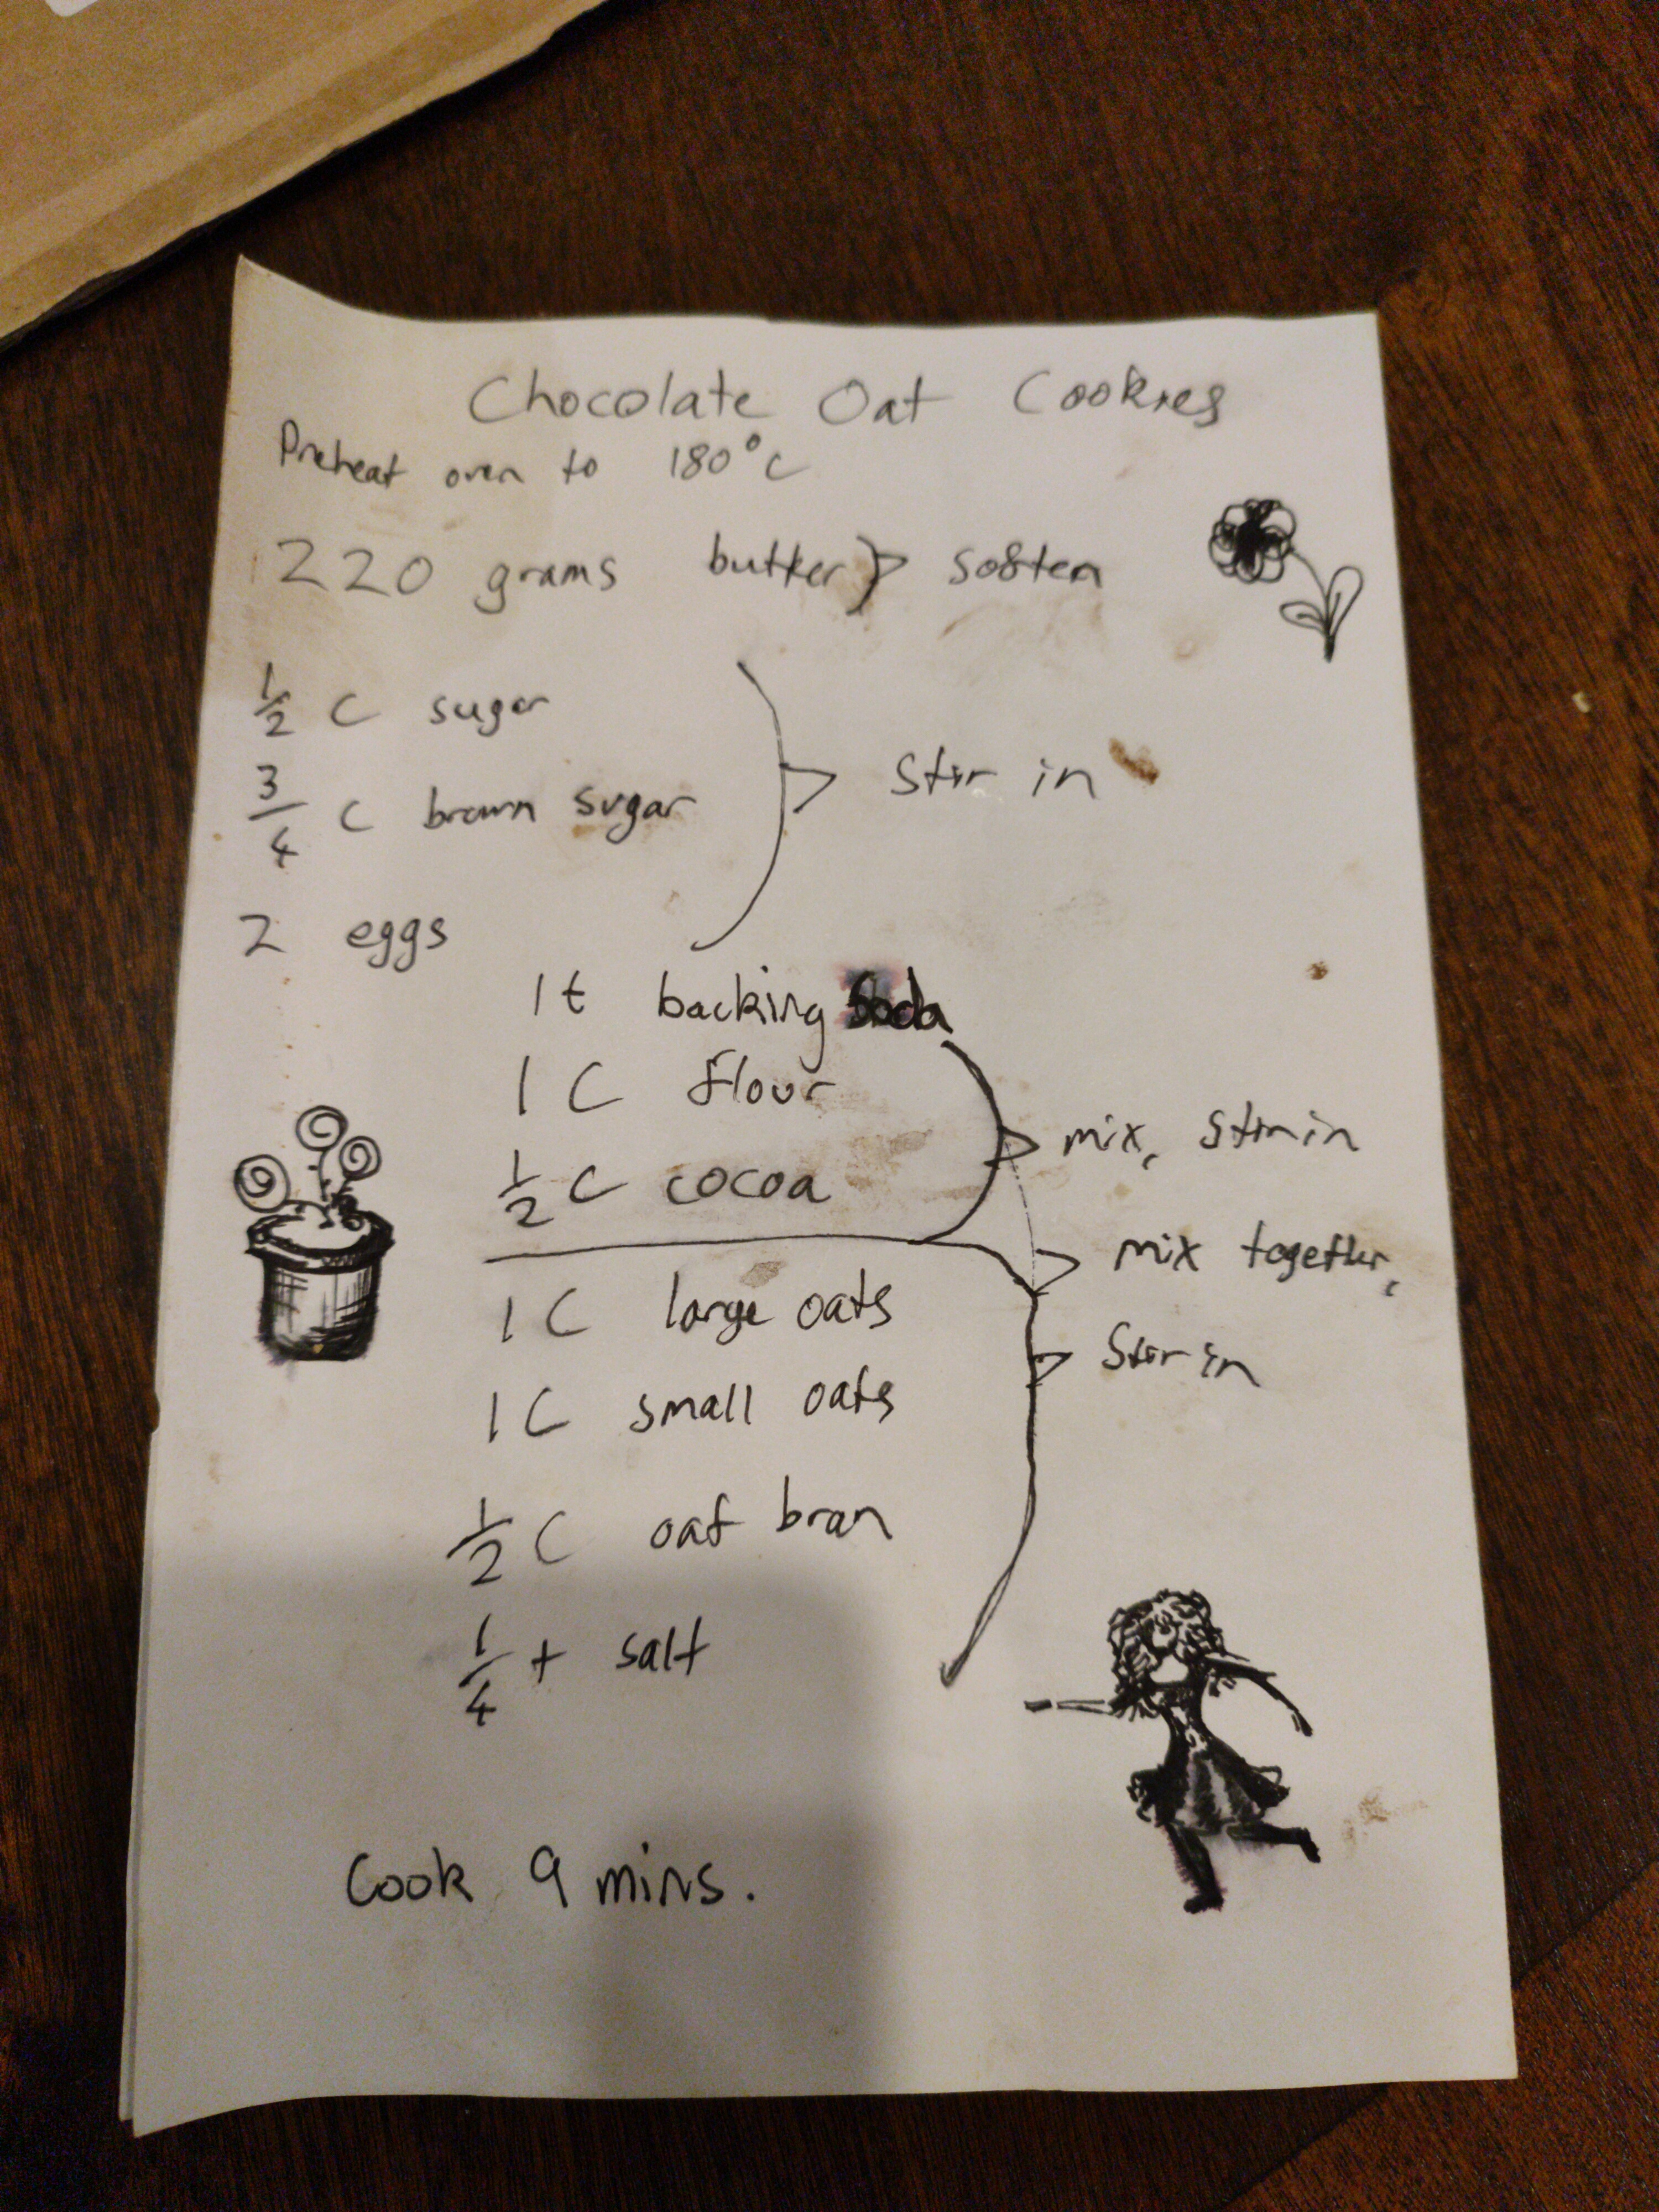 Chocolate Oat Cookies
Preheat oven to 180°C
220 grams butter > soften
1/2 C sugar
3/4 C brown sugar
2 eggs
Stir in
1t backing Soda
1 C flour
1/2 C cocoa
mix, stir in
1 C large oats
1 C small oats
1/2 C oat bran
1/4 t salt
mix together,
Stir in
Cook 9 mins.